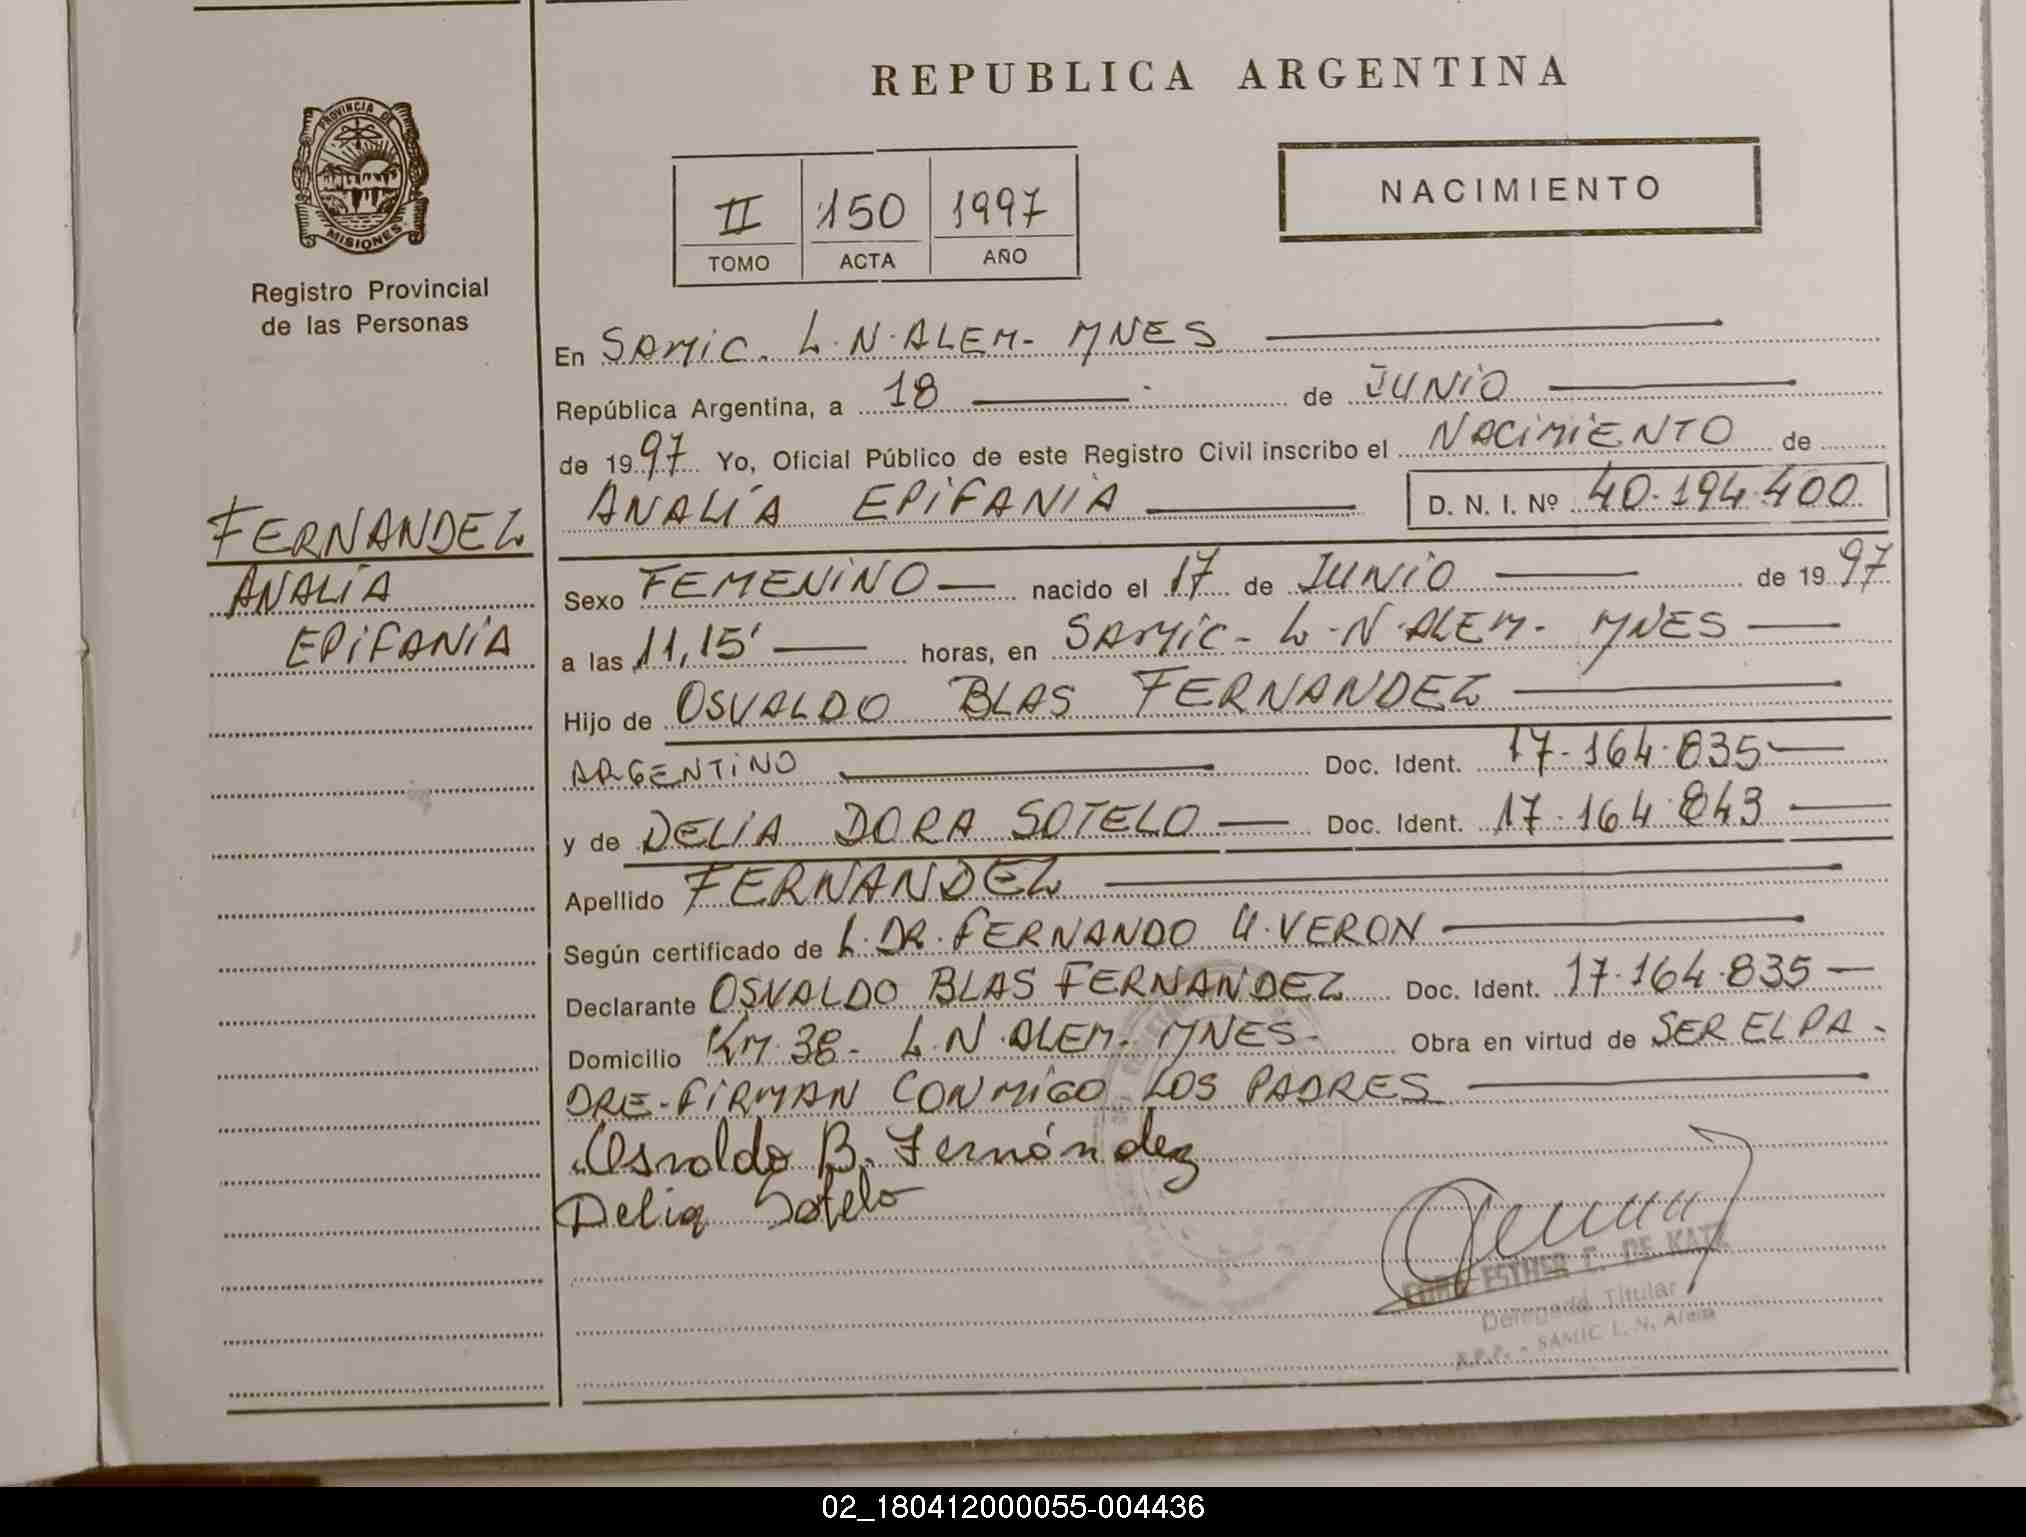 REPUBLICA ARGENTINA
PROVINCIA DE
MISIONES
Registro Provincial
de las Personas
II 150 1997
TOMO ACTA AÑO
NACIMIENTO
FERNANDEZ
ANALÍA
EPIFANIA
En SAMIC. L.N.ALEM- MNES
República Argentina, a 18 de JUNIO
de 1997 Yo, Oficial Público de este Registro Civil inscribo el NACIMIENTO de
ANALÍA EPIFANIA D. N. I. Nº 40.194.400
Sexo FEMENINO nacido el 17 de JUNIO de 1997
a las 11,15' horas, en SAMIC- L.N.ALEM- MNES
Hijo de OSVALDO BLAS FERNANDEZ
ARGENTINO Doc. Ident. 17.164.835
y de DELIA DORA SOTELO Doc. Ident. 17.164.843
Apellido FERNANDEZ
Según certificado de L.DR.FERNANDO U.VERON
Declarante OSVALDO BLAS FERNANDEZ Doc. Ident. 17.164.835
Domicilio KM.38- L.N.ALEM- MNES- Obra en virtud de SER EL PA-
DRE-FIRMAN CONMIGO LOS PADRES
Osvaldo B. Fernández
Delia Sotelo
ESTHER DE
Delegada Titular
R.P.P. - SAMIC L. N. Alem
02_180412000055-004436